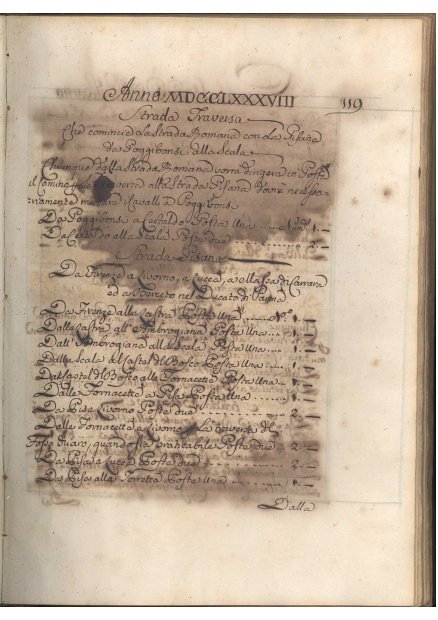 Anno MDCCLXXXVIII 119
Strada Traversa
Che comincia La Strada Romana con La Pisana
da Poggibonsi alla Scala
Chiunque dalla Strada Romana vorrà dirigere in Posta
il Camino per traverso alla Strada Pisana dovrà necessa-
riamente mutare i Cavalli a Poggibonsi
Da Poggibonsi a Certaldo Posta Una N.º 1
Da Certaldo alla Scala Poste due 2
Strada Pisana
Da Firenze a Livorno, a Lucca, a Massa di Carrara
ed a Forreto nel Ducato di
Da Firenze alla Lastra Posta Una N.º 1
Dalla Lastra all'Ambrogiana Posta Una 1
Dall'Ambrogiana alla Scala Posta Una 1
Dalla Scala a Castel del Bosco Posta Una 1
Da Castel del Bosco alle Fornacette Posta Una 1
Dalle Fornacette a Pisa Posta Una 1
Da Pisa a Livorno Poste due 2
Dalle Fornacette a Livorno La traversa del
Fosso Chiaro, quando sia praticabile Poste due 2
Da Pisa a Lucca Poste due 2
Da Pisa alla Torretta Posta Una 1
Dalla